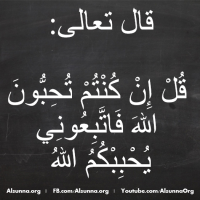 قال تعالى:
قُلْ إِنْ كُنْتُمْ تُحِبُّونَ
اللهَ فَاتَّبِعُونِي
يُحْبِبْكُمُ اللهُ
Alsunna.org | FB.com/Alsunna.org | Youtube.com/AlsunnaOrg